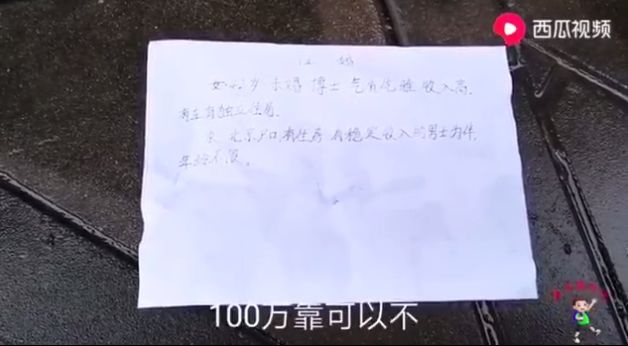 西瓜视频
征 婚
女 42岁 未婚 博士 气质优雅 收入高
有车有独立住房.
北京户口 有住房 有稳定收入的男士为伴
年龄不限。
100万靠可以不